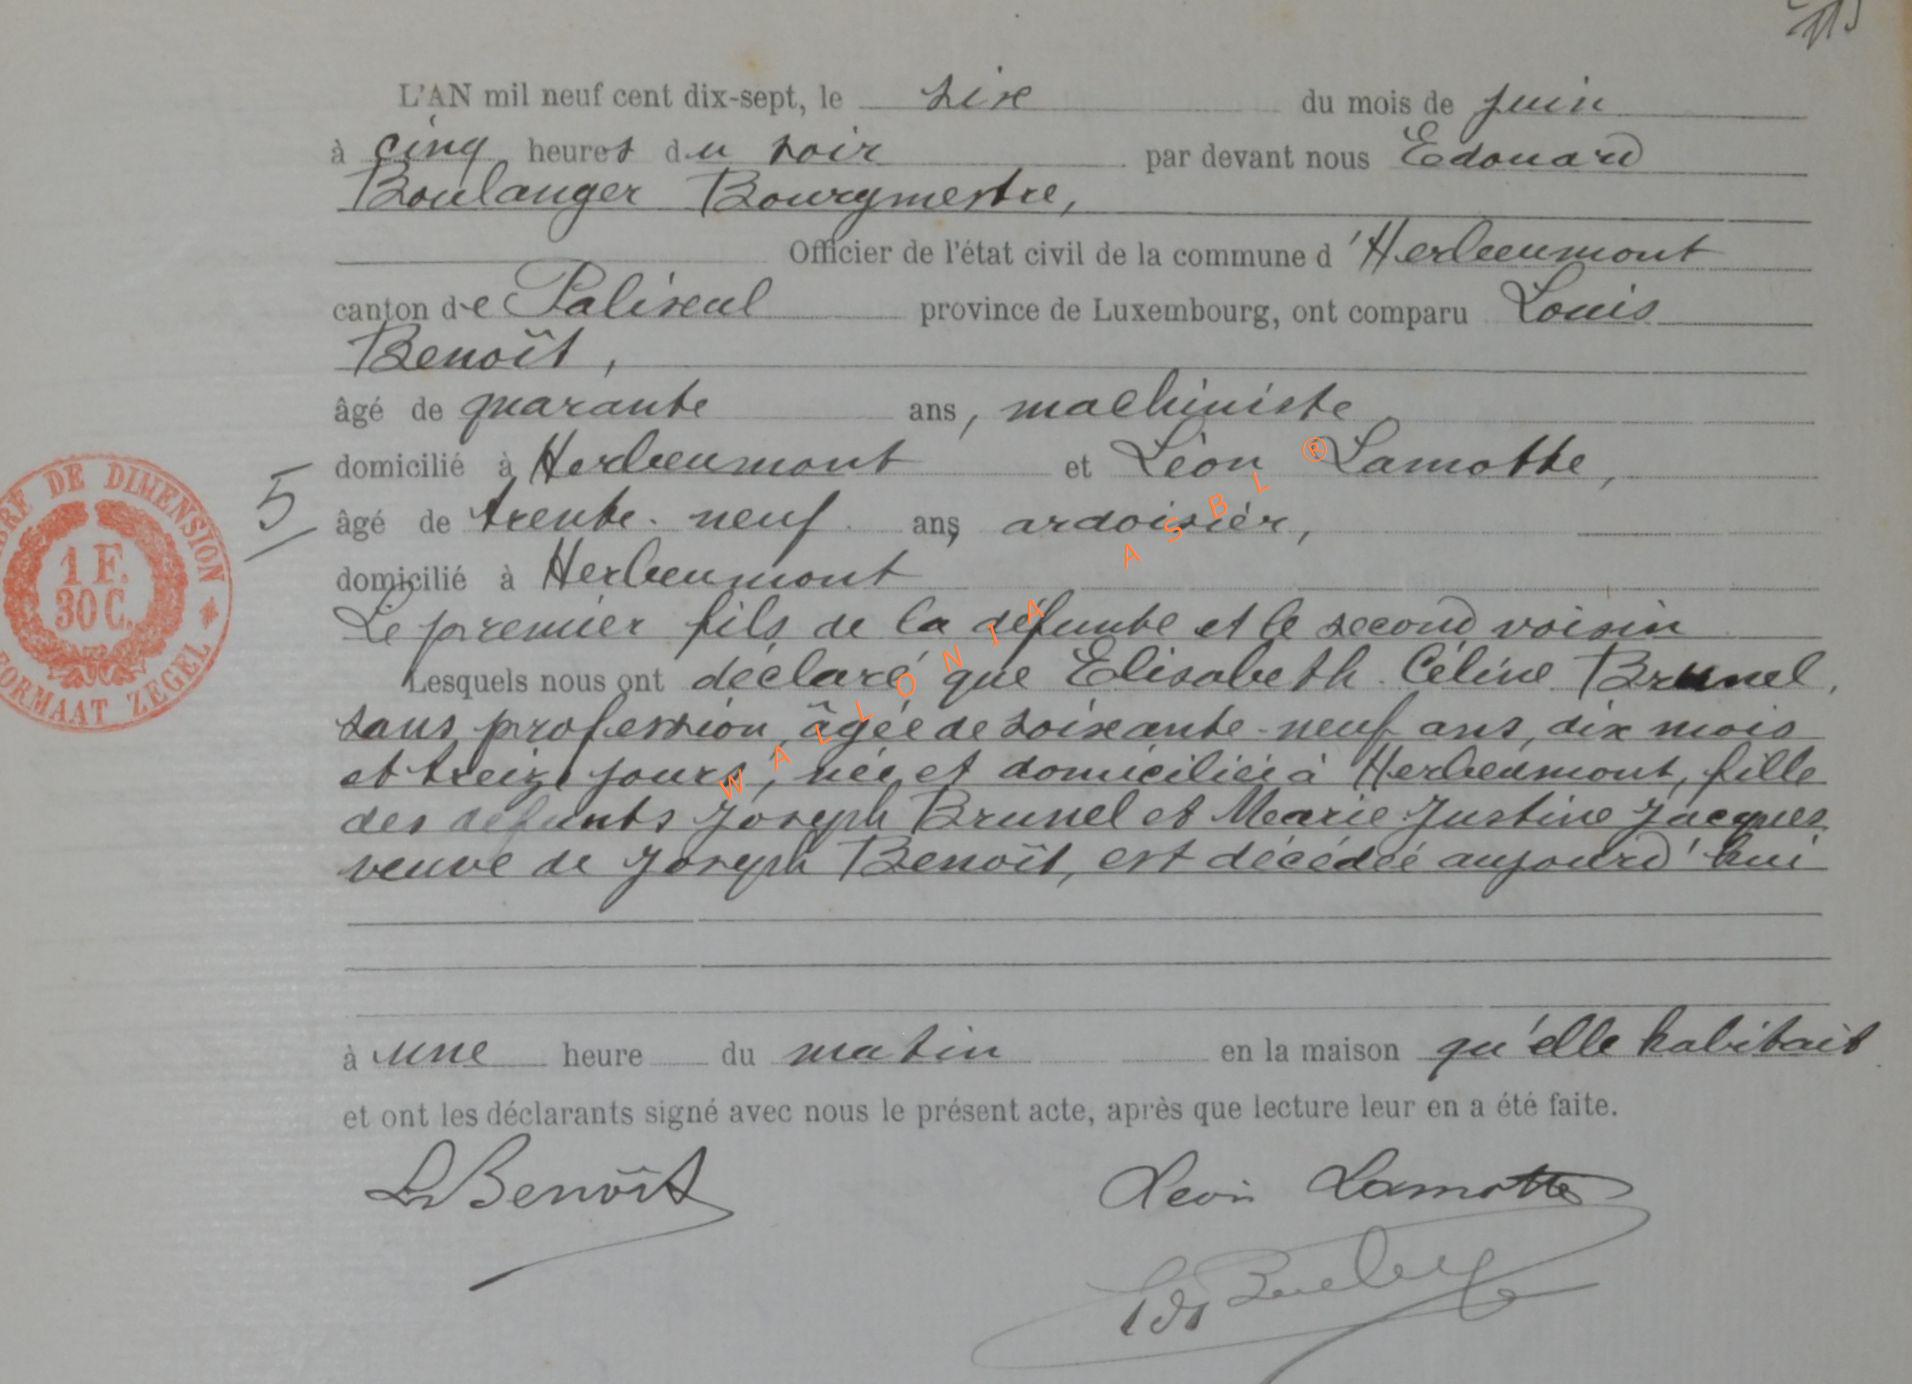 L'AN mil neuf cent dix-sept, le six du mois de juin
à cinq heures du soir par devant nous Edouard
Boulanger Bourgmestre,
Officier de l'état civil de la commune d'Herbeumont
canton de Paliseul province de Luxembourg, ont comparu Louis
Benoît,
âgé de quarante ans, machiniste
domicilié à Herbeumont et Léon Lamotte,
5
âgé de trente-neuf ans, ardoisier,
domicilié à Herbeumont
Le premier fils de la défunte et le second voisin
Lesquels nous ont déclaré que Elisabeth Céline Brunel,
sans profession, âgée de soixante-neuf ans, dix mois
et treize jours, née et domiciliée à Herbeumont, fille
des défunts Joseph Brunel et Marie Justine Jacques
veuve de Joseph Benoît, est décédée aujourd'hui
à une heure du matin en la maison qu'elle habitait
et ont les déclarants signé avec nous le présent acte, après que lecture leur en a été faite.
L Benoît
Léon Lamotte
DE DIMENSION
1 F.
30 C.
FORMAAT ZEGEL
WALLONIA ASBL ®